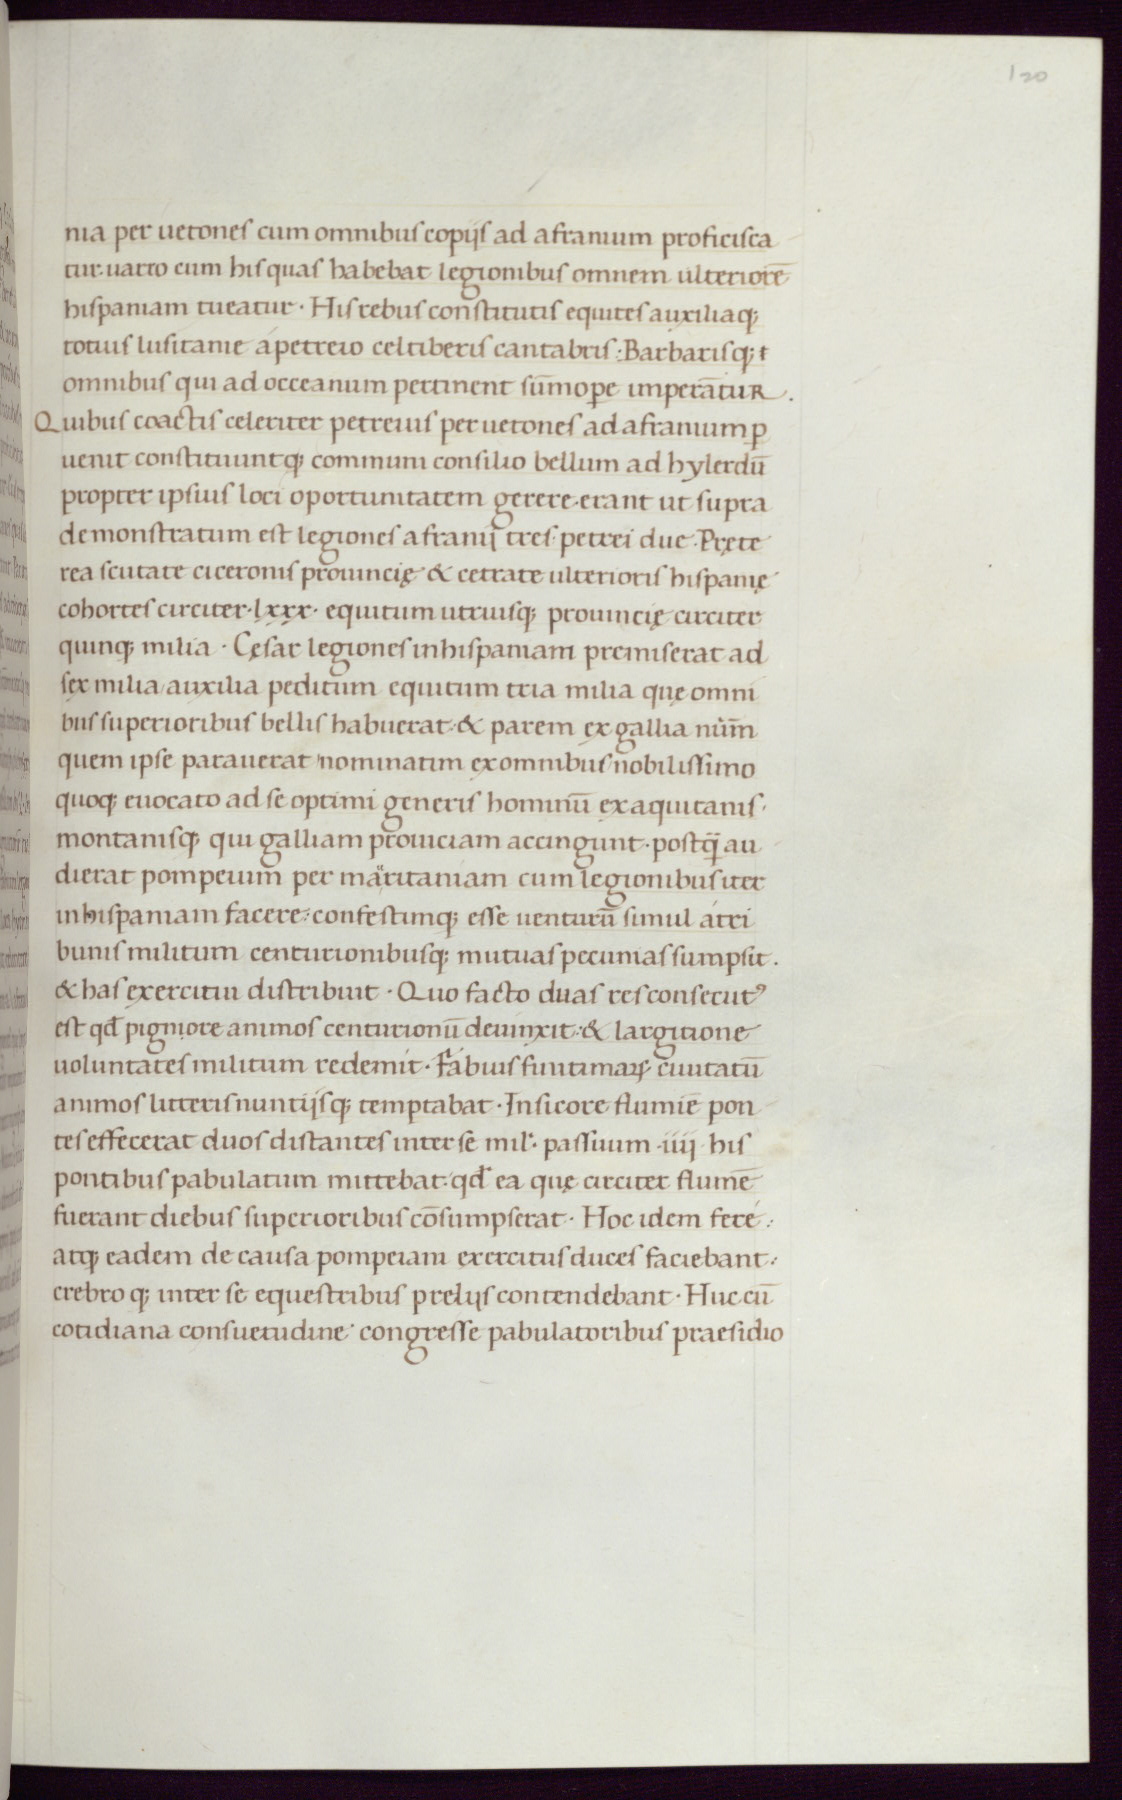 120
nia per uetones cum omnibus copijs ad afranium proficisca
tur. uarro cum his quas habebat legionibus omnem ulteriorē
hispaniam tueatur · His rebus constitutis equites auxiliaq;
totius lusitanie á petreio celtiberis cantabris : Barbarisq; t
omnibus qui ad occeanum pertinent sūmoꝑe imperāᷓtur.
Quibus coactis celeriter petreius per uetones ad afranium ꝑ
uenit constituuntq; communi consilio bellum ad hylerdū
propter ipsius loci oportunitatem gerere. erant ut supra
demonstratum est legiones afranij tres· petrei due · Pręte
rea scutate ciceronis prouincię & cetrate ulterioris hispanię
cohortes circiter · lxxx · equitum utriusq; prouincię circiter
quinq; milia · Cęsar legiones in hispaniam premiserat ad
sex milia auxilia peditum equitum tria milia quę omni
bus superioribus bellis habuerat · & parem ex gallia nūm
quem ipse parauerat nominatim ex omnibus nobilissimo
quoq; euocato ad se optimi generis hominū ex aquitanis ·
montanisq; qui galliam prouiciam accingunt · postq̄ au
dierat pompeium per maritaniam cum legionibus iter
in hispaniam facere : confestimq; esse uenturū simul átri
bunis militum centurionibusq; mutuas pecunias sumpsit .
& has exercitui distribuit · Quo facto duas res consecutꝰ
est qđ pigniore animos centurionū deuinxit · & largitione
uoluntates militum redemit · Fabius funtimaꝝ ciuitatū
animos litteris nuntijsq; temptabat · In sicore flumiē pon
tes effecerat duos distantes inter se mil· passuum · iiij · his
pontibus pabulatum mittebat · qđ ea quę circiter flumē
fuerant diebus superioribus cōsumpserat · Hoc idem fere :
atq; eadem de causa pompeiani exercitus duces faciebant :
crebro q; inter se equestribus prelijs contendebant · Huc cū
cotidiana consuetudine congresse pabulatoribus praesidio